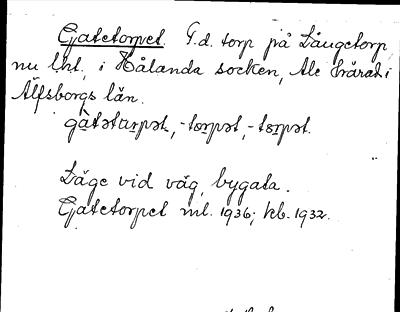 Gatetorpet. F.d. torp på Långetorp,
nu lht, i Hålanda socken, Ale härad i
Älfsborgs län.
gàtətɷrpət, -torpət, -tɵrpət.
Läge vid väg, bygata.
Gatetorpet ml. 1936; kb. 1932.